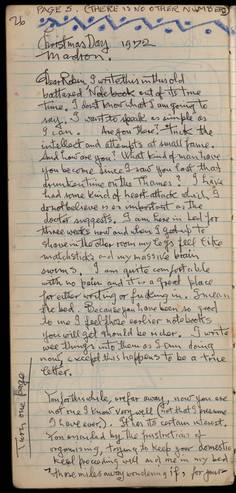 26
PAGE 5. (THERE IS NO OTHER NUMBER)
Christmas Day 1972
Madron.
Dear Robin, I write this in this old
battered Notebook out of its true
time. I don't know what I am going to
say. I want to speak as simple as
I can. Are you there? Fuck the
intellect and attempts at small fame.
And how are you? What kind of man have
you become since I saw you last that
drunken time on the Thames? I have
had some kind of heart attack which I
do not believe is as important as the
doctor suggests. I am here in bed for
three weeks now and when I get up to
shave in the other room my legs feel like
matchsticks and my massive brain
swims. I am quite comfortable
with no pain and it is a good place
for either writing or fucking in. I mean
the bed. Because you have been so good
to me I feel these earlier notebooks
you will get should be richer. I write
wee things into them as I am doing
now, except this happens to be a true
letter.
You for this while, over far away, now you are
not one I know very well (not that I presume
I have ever). It has its certain interest.
You assailed by the frustrations of
organising, trying to keep your domestic
keel proceeding well and me in my bed
those miles away wondering if, for your
Turn one page